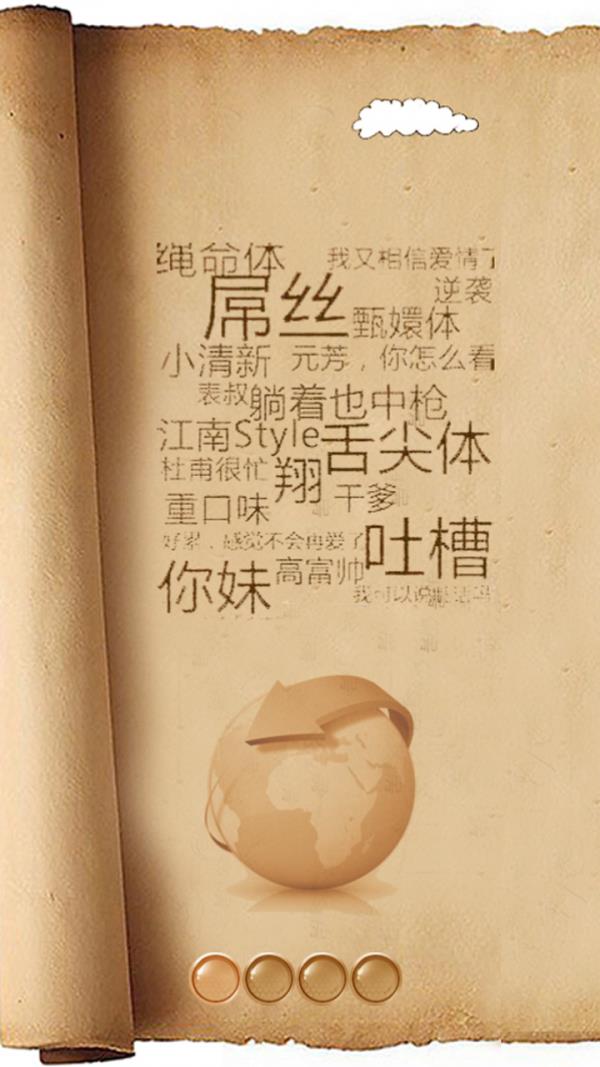 绳命体 我又相信爱情了
屌丝 逆袭
甄嬛体
小清新 元芳，你怎么看
表叔 躺着也中枪
江南Style 舌尖体
杜甫很忙 翔 干爹
重口味
好累、感觉不会再爱了 吐槽
你妹 高富帅
我可以说